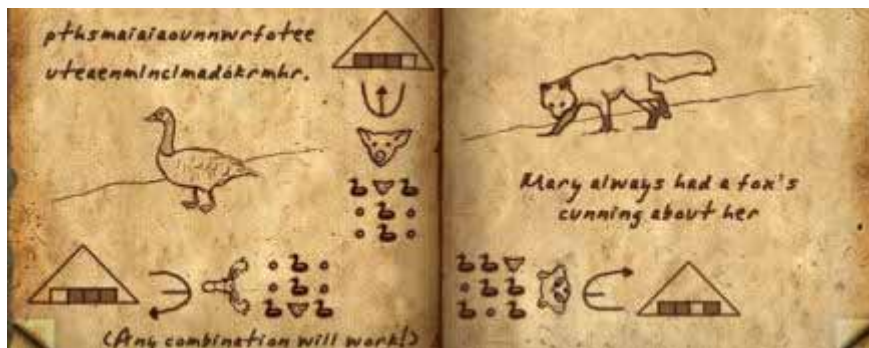 pthsmaiaiaounnwrfotee
uteaenmlnclmadokrmhr.
(Any combination will work!)
Mary always had a fox's
cunning about her